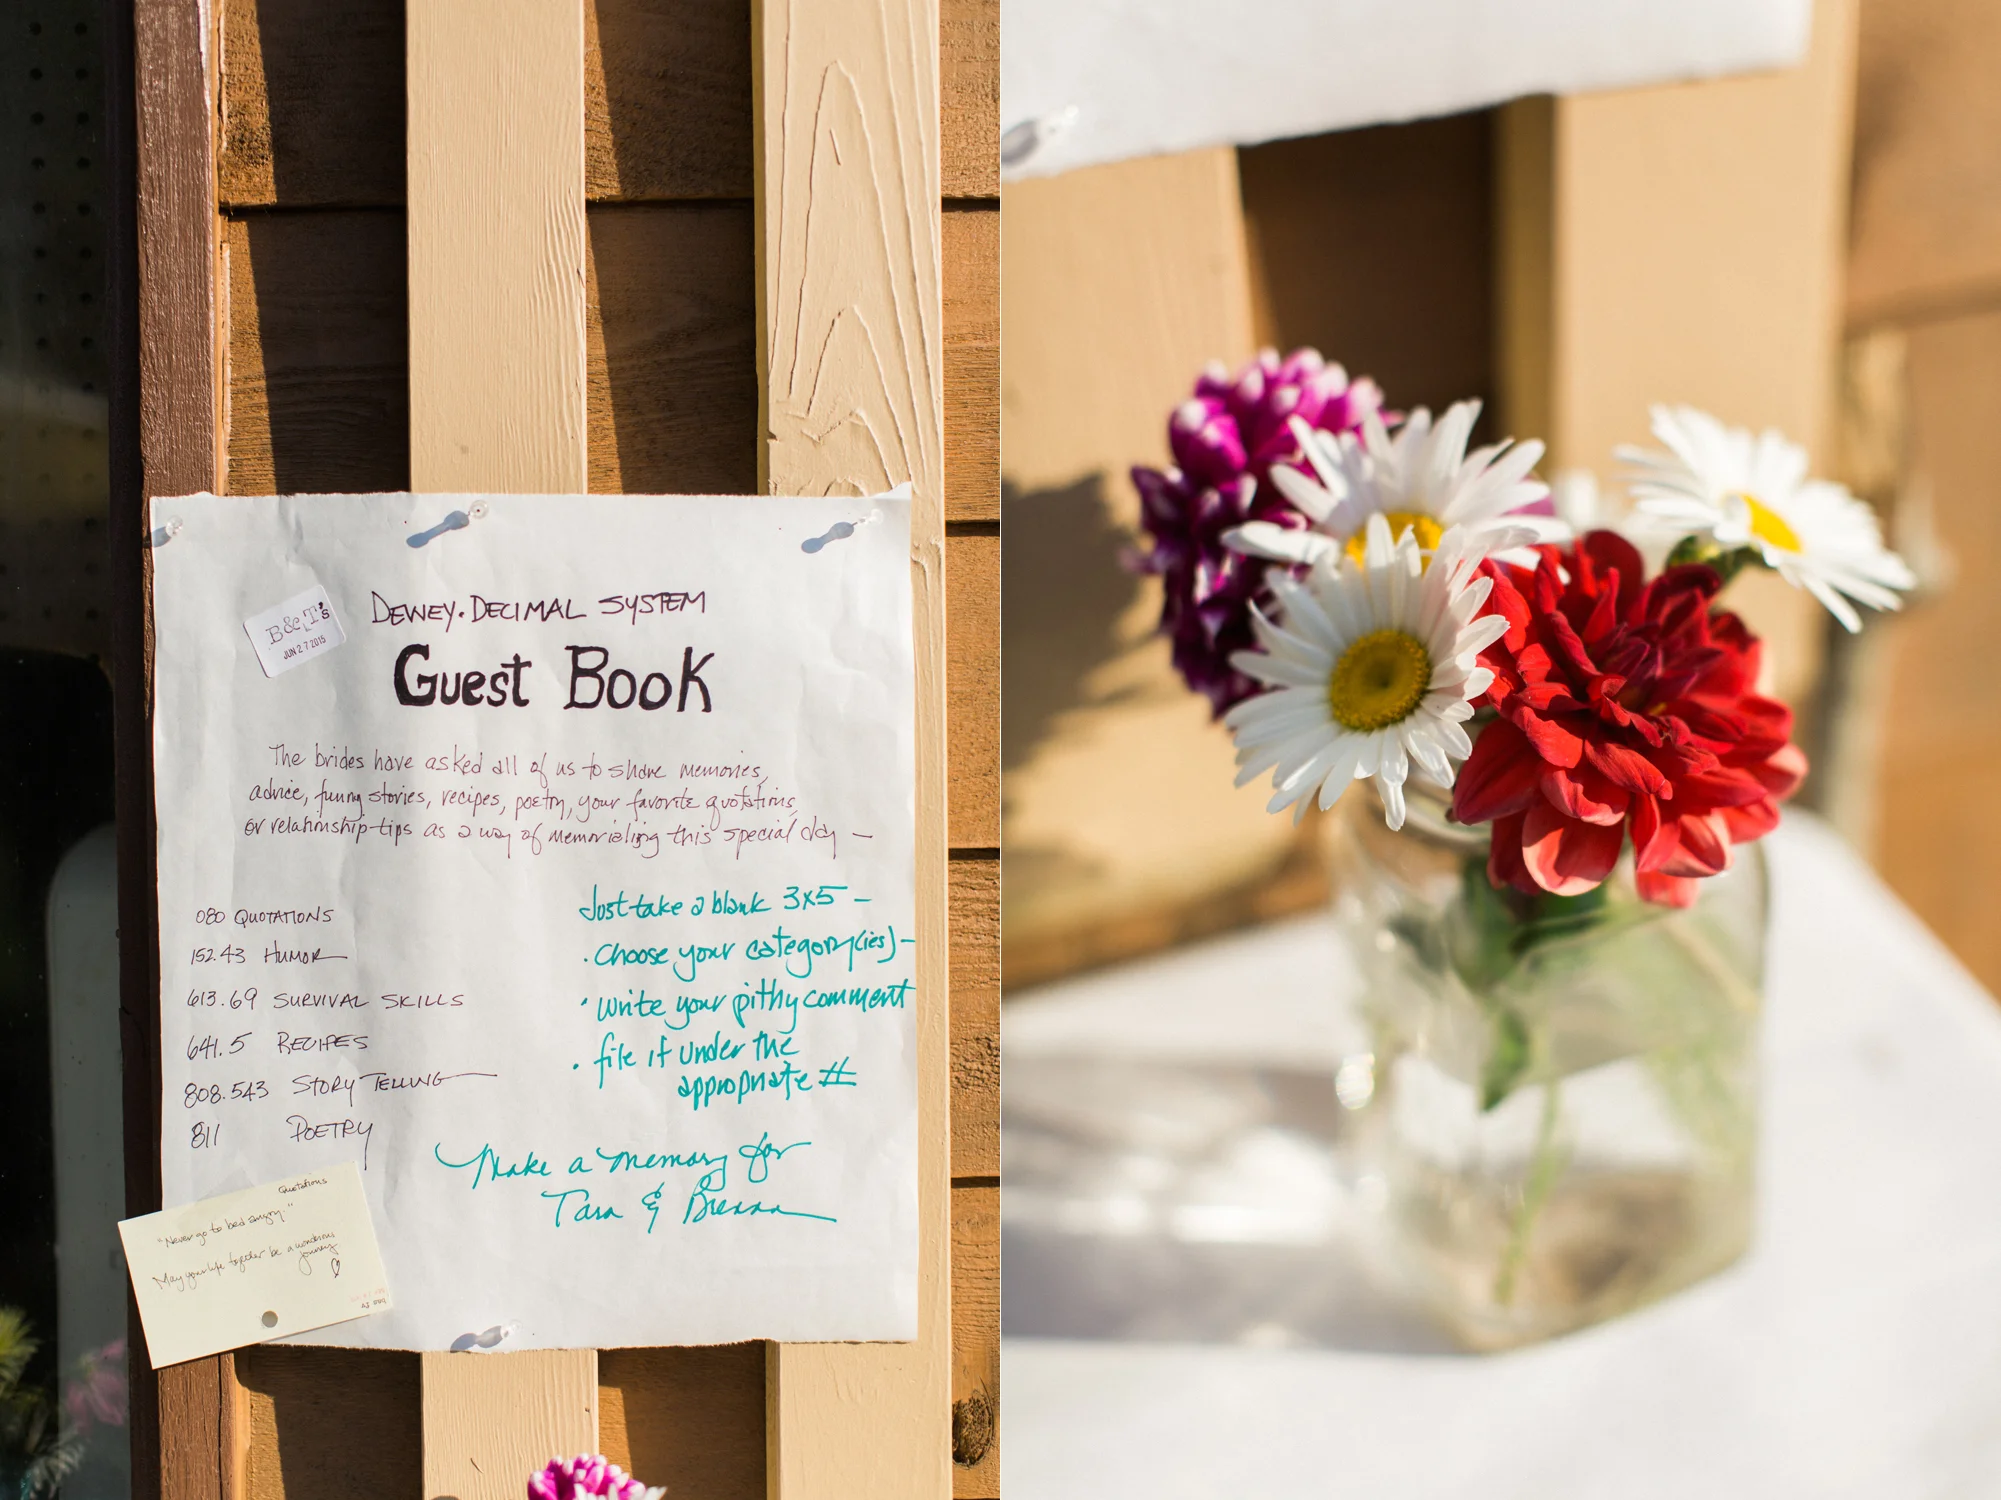 B&T's
JUN 27 2015
DEWEY·DECIMAL SYSTEM
Guest Book
The brides have asked all of us to share memories,
advice, funny stories, recipes, poetry, your favorite quotations,
or relationship tips as a way of memorializing this special day —
080 QUOTATIONS
152.43 HUMOR
613.69 SURVIVAL SKILLS
641.5 RECIPES
808.543 STORY TELLING
811 POETRY
Just take a blank 3x5 —
· Choose your category(ies) —
· Write your pithy comment
· file it under the
appropriate #
Make a memory for
Tara & Brenna
Quotations
"Never go to bed angry."
May your life together be a wondrous
journey ♡